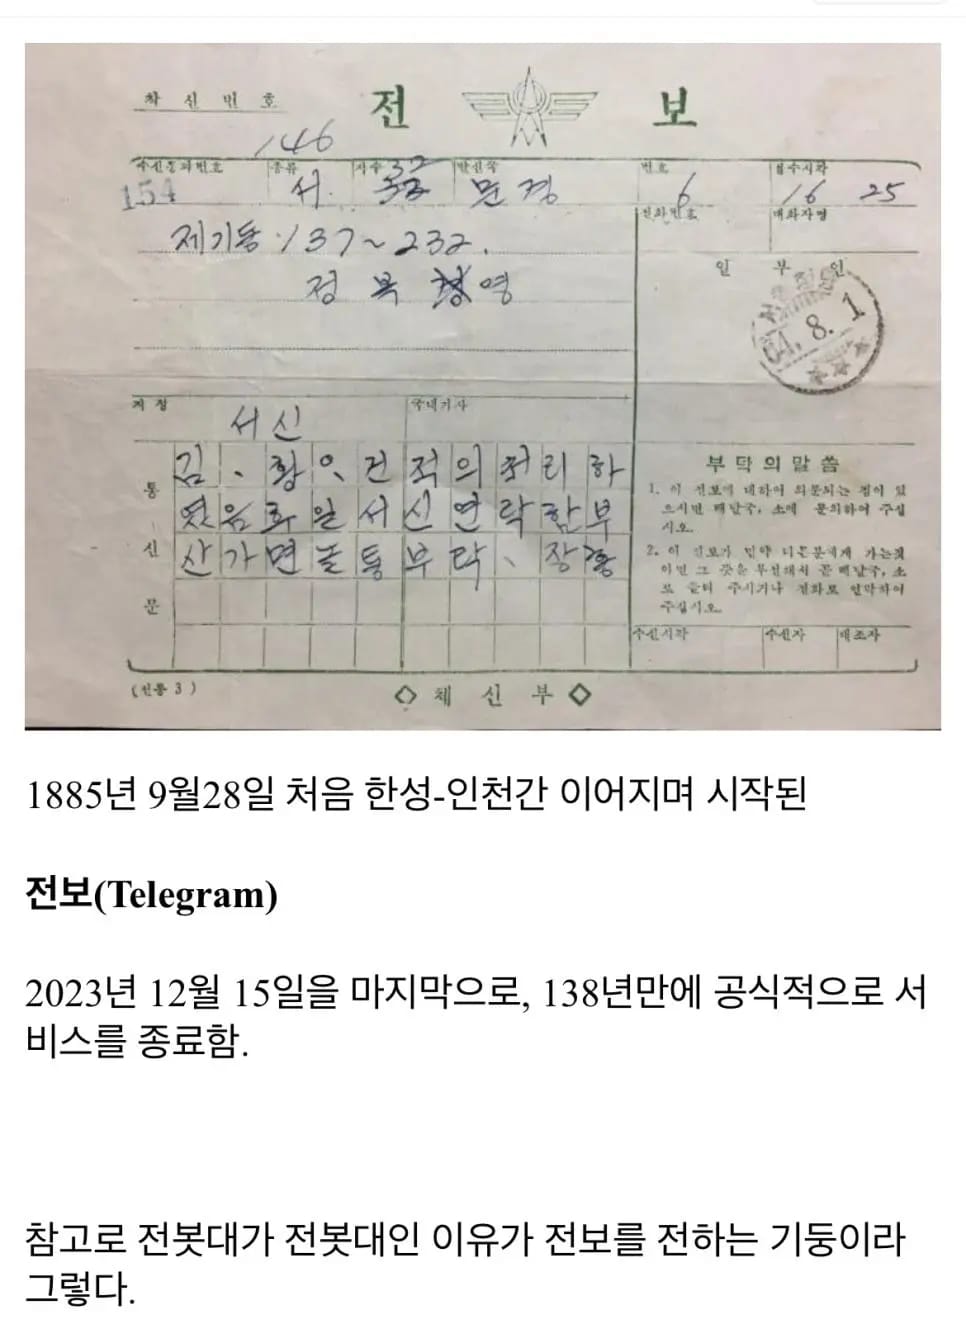 착 신 번 호
전 보
146
수신통과번호 종류 자수 발신국 번호 접수시각
154 서. 32 문경 6 16 25
전화번호 대화자명
제기동 137~232.
정 복 영
일 부 인
64. 8. 1
지 정 국내기사
서신
통 신 문
김、황、건 적의 처리 하
였음 화일 서신 연락함 부
산가면 통 부탁、장
부 탁 의 말 씀
1. 이 전보에 대하여 의문되는 점이 있
으시면 배달국, 소에 문의하여 주십
시오.
2. 이 전보가 만약 다른분에게 가는것
이면 그 뜻을 부전해서 곧 배달국, 소
로 돌려 주시거나 전화로 연락하여
주십시오.
수신시각 수신자 대조자
(전통 3)
◇ 체 신 부 ◇
1885년 9월28일 처음 한성-인천간 이어지며 시작된
전보(Telegram)
2023년 12월 15일을 마지막으로, 138년만에 공식적으로 서
비스를 종료함.
참고로 전봇대가 전봇대인 이유가 전보를 전하는 기둥이라
그렇다.